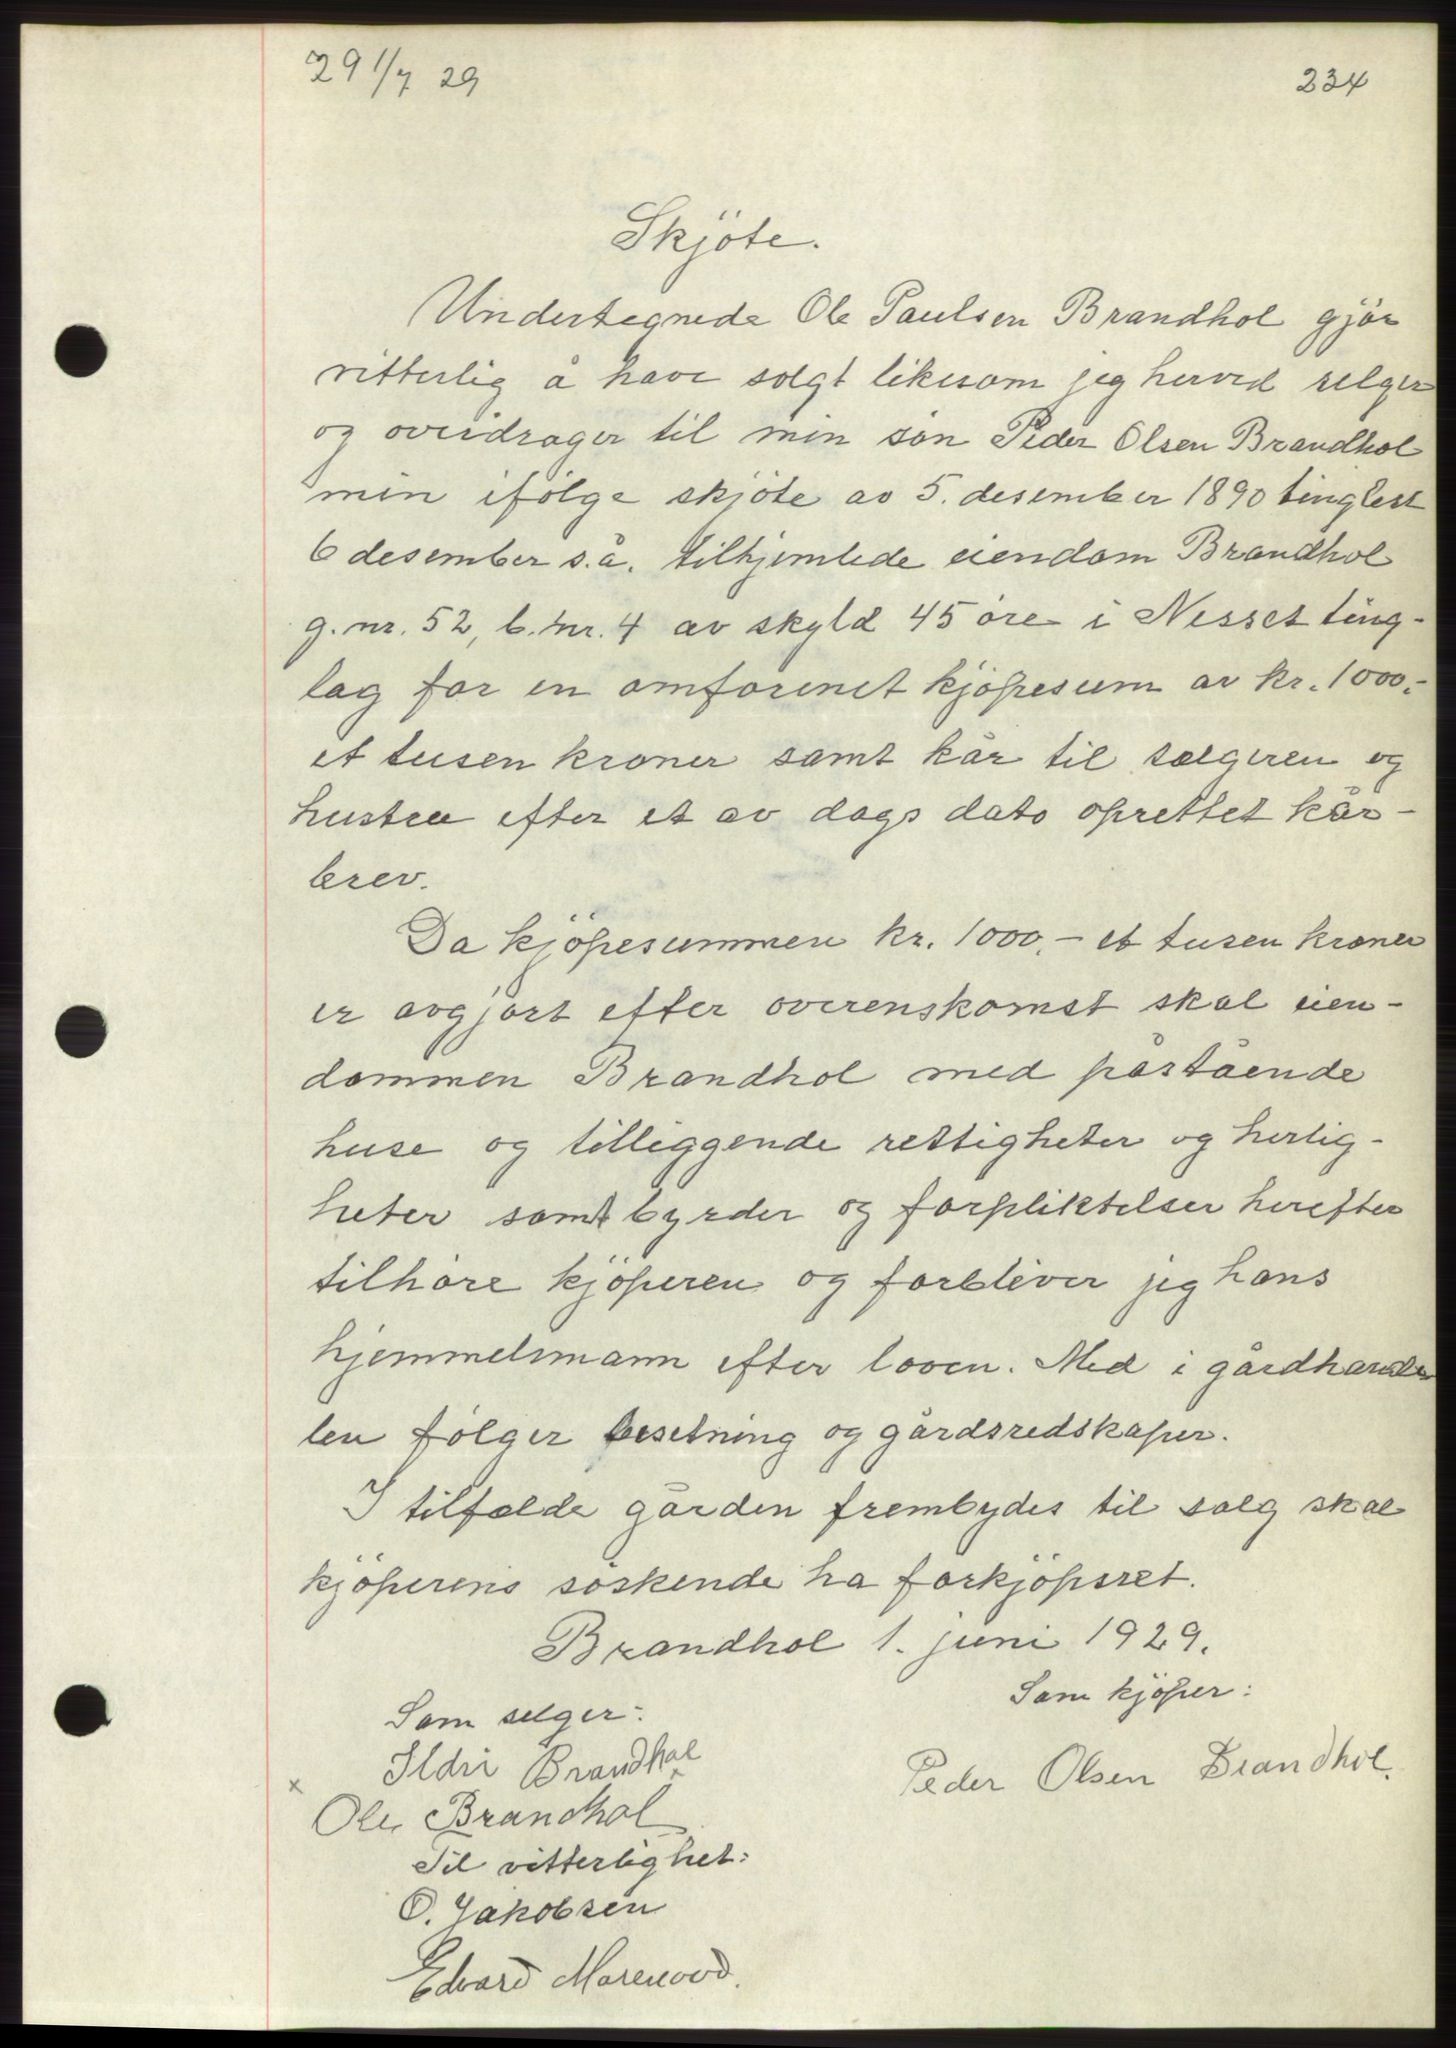 29 1/7 29
234
Skjöte.
Undertegnede Ole Paulsen Brandhol gjör
vitterlig å have solgt likesom jeg herved selger
og overdrager til min sön Peder Olsen Brandhol
min ifölge skjöte av 5. desember 1890 tinglest
6 desember s.å. tilhjemlede eiendom Brandhol
g.nr. 52, b.nr. 4 av skyld 45 öre i Nesset ting-
lag for en omforenet kjöpesum av kr. 1000.-
et tusen kroner samt kår til sælgeren og
hustru efter et av dags dato oprettet kår-
brev.
Da kjöpesummen kr. 1000.- et tusen kroner
er avgjort efter overenskomst skal eien-
dommen Brandhol med påstående
huse og tilliggende rettigheter og herlig-
heter samt byrder og forpliktelser herefter
tilhöre kjöperen og forbliver jeg hans
hjemmelsmann efter loven. Med i gårdhande
len fölger besetning og gårdsredskaper.
I tilfælde gården frembydes til salg skal
kjöperens söskende ha forkjöpsret.
Brandhol 1. juni 1929.
Som kjöper:
Som selger:
Ildri Brandhol
Peder Olsen Brandhol.
x Ole Brandhol
Til vitterlighet:
O. Jakobsen
Edvard Morenood.